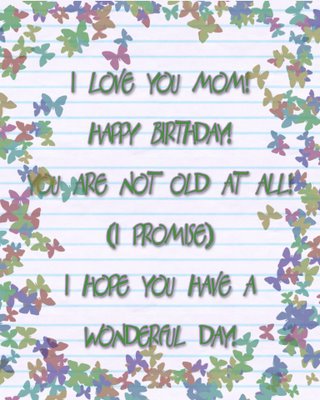 I LOVE YOU MOM!
HAPPY BIRTHDAY!
YOU ARE NOT OLD AT ALL!
(I PROMISE)
I HOPE YOU HAVE A
WONDERFUL DAY!